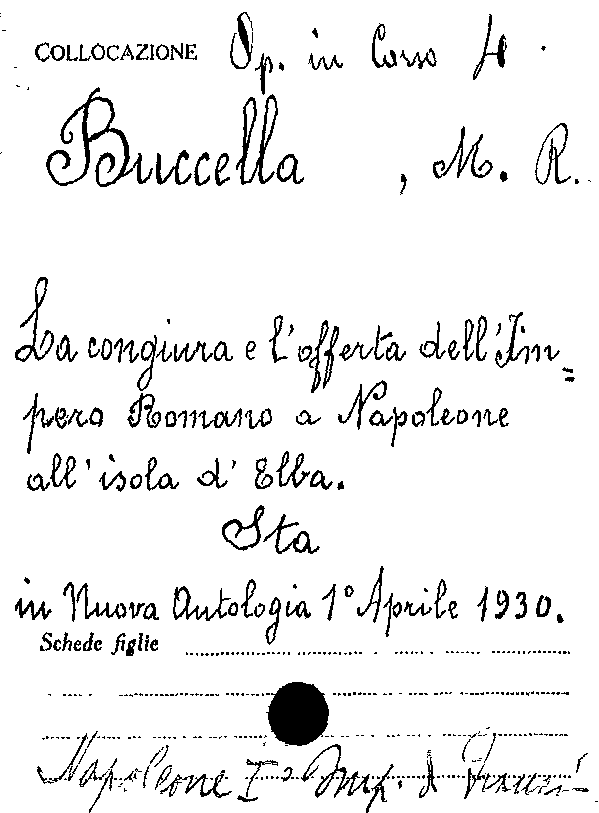 COLLOCAZIONE Op. in Corso 4
Buccella , M. R.
La congiura e l'offerta dell'Im=
pero Romano a Napoleone
all'isola d'Elba.
Sta
in Nuova Antologia 1° Aprile 1930.
Schede figlie
Napoleone I° Imp. d